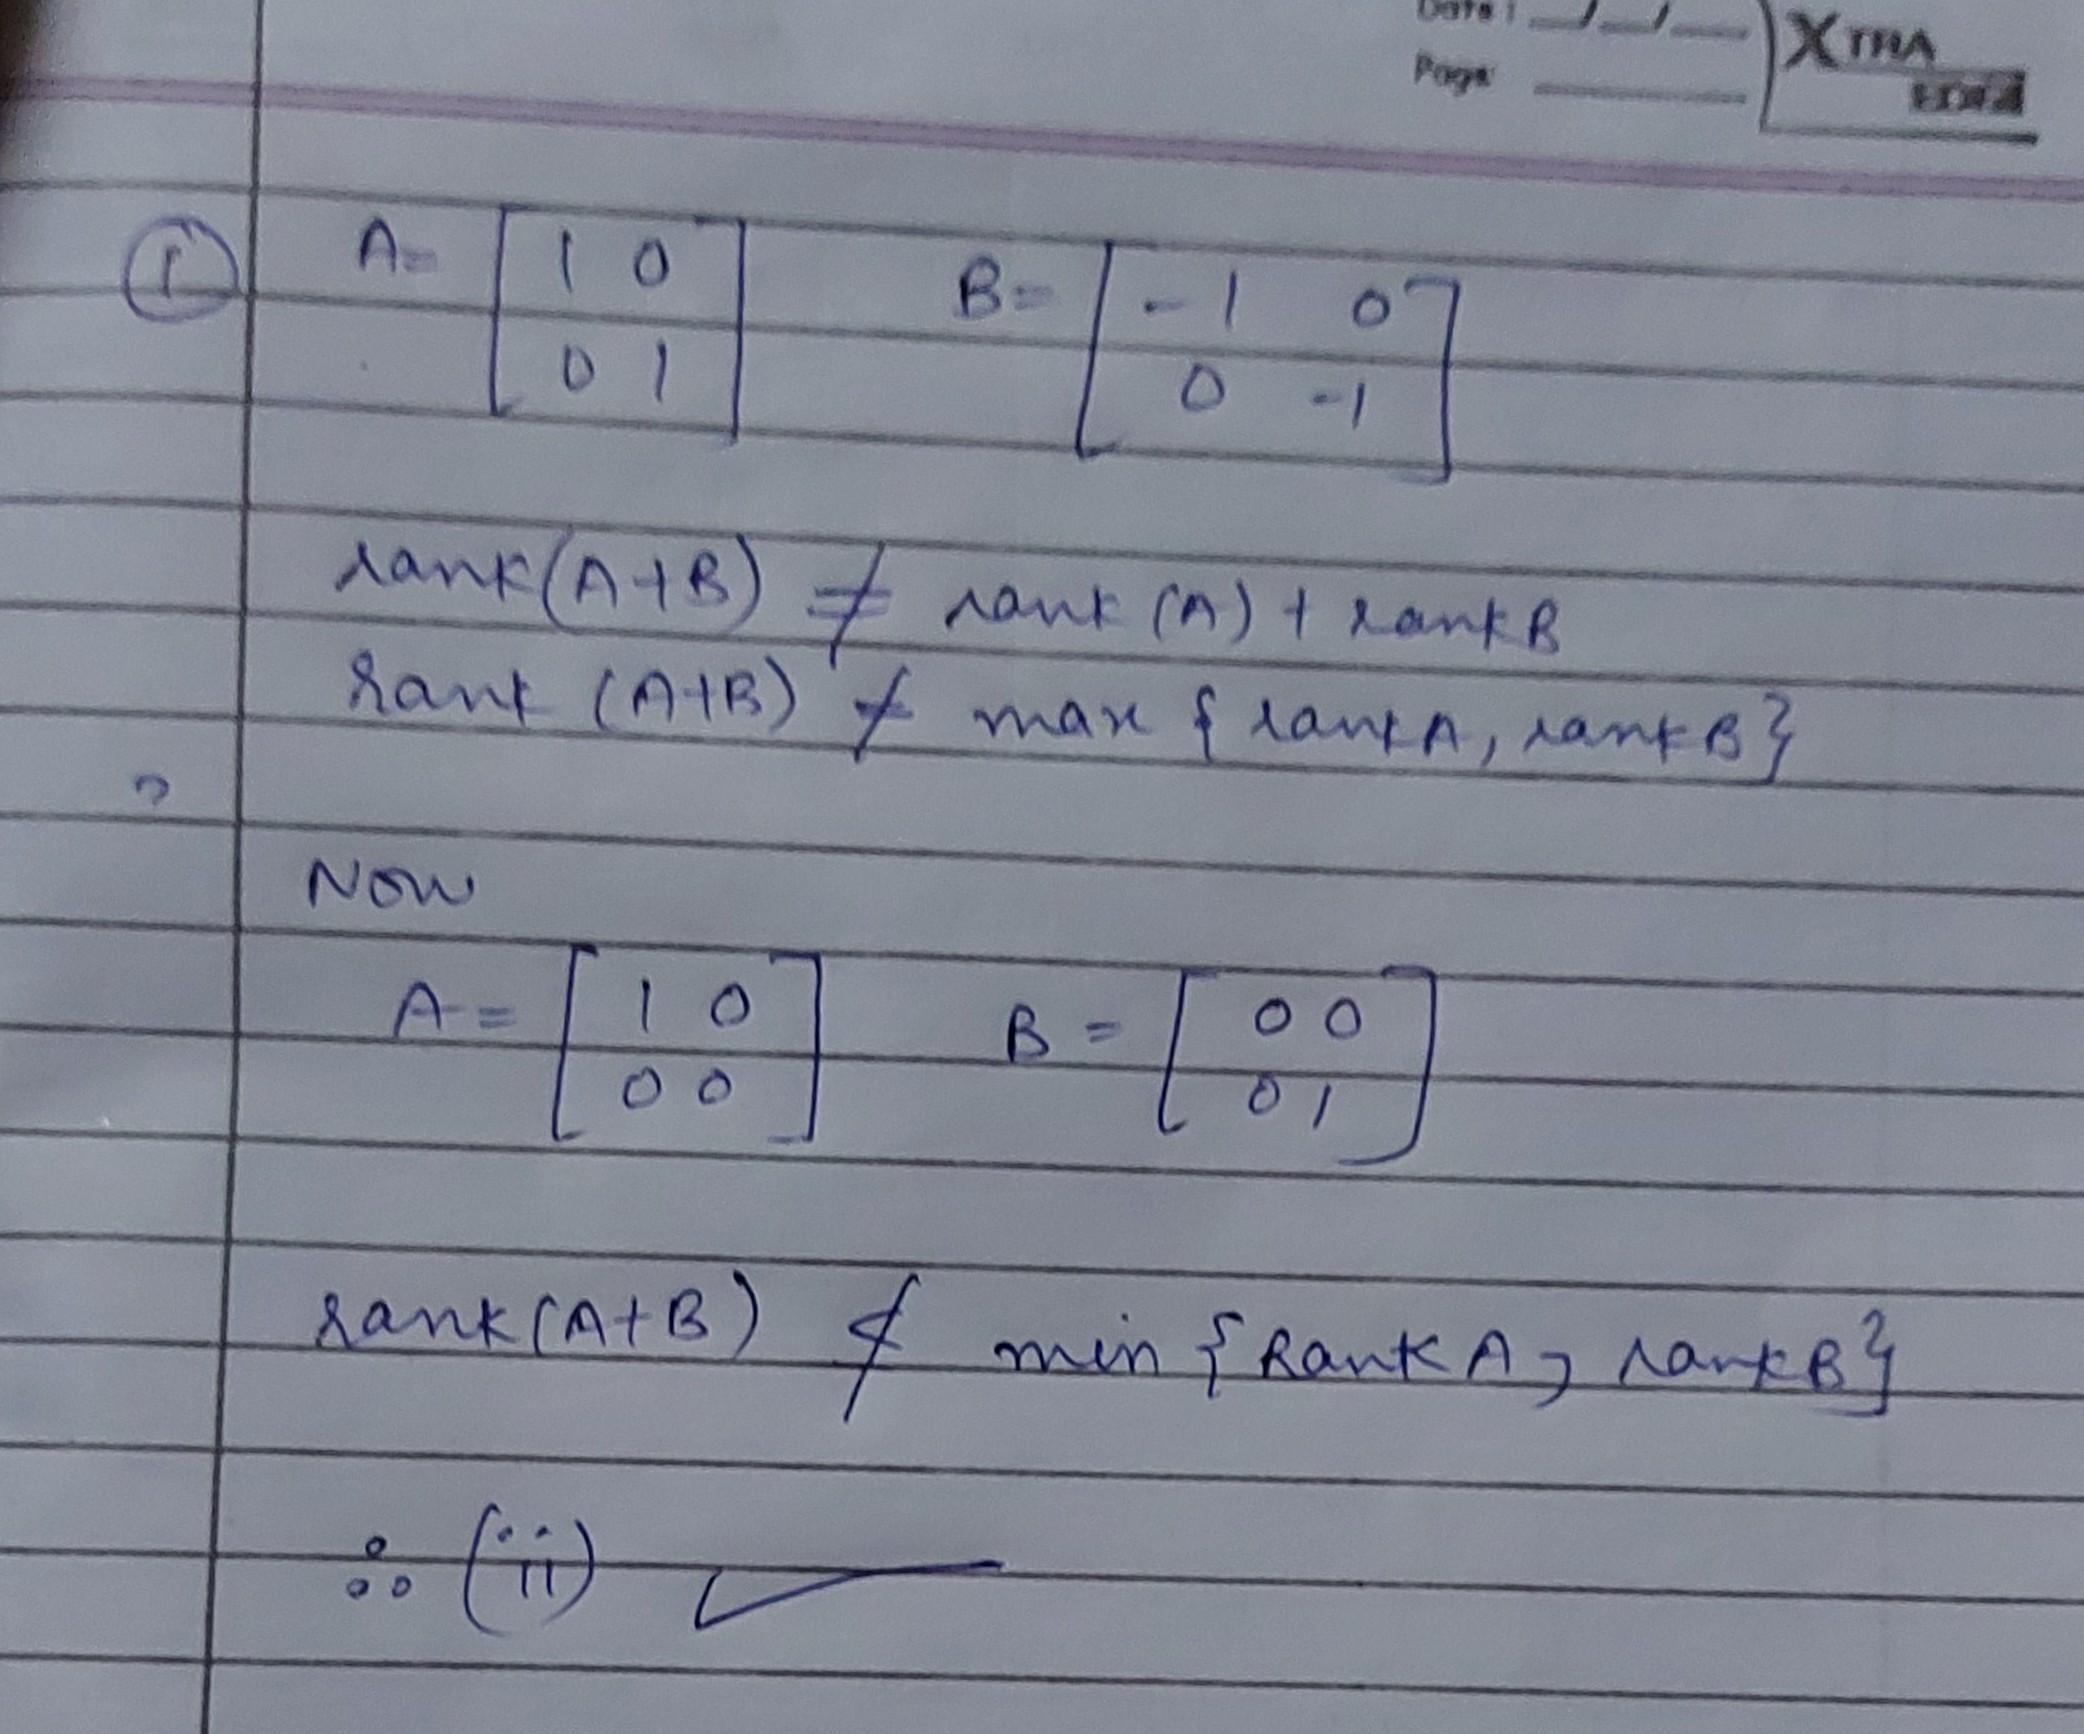 Date : __/__/__
Page
XTRA
① A= [1 0 0 1] B= [-1 0 0 -1]
rank(A+B) ≠ rank (A) + rank B
rank (A+B) ≠ max { rank A, rank B}
Now
A = [1 0 0 0] B = [0 0 0 1]
rank(A+B) ≰ min {Rank A, rank B}
∴ (ii) ✓